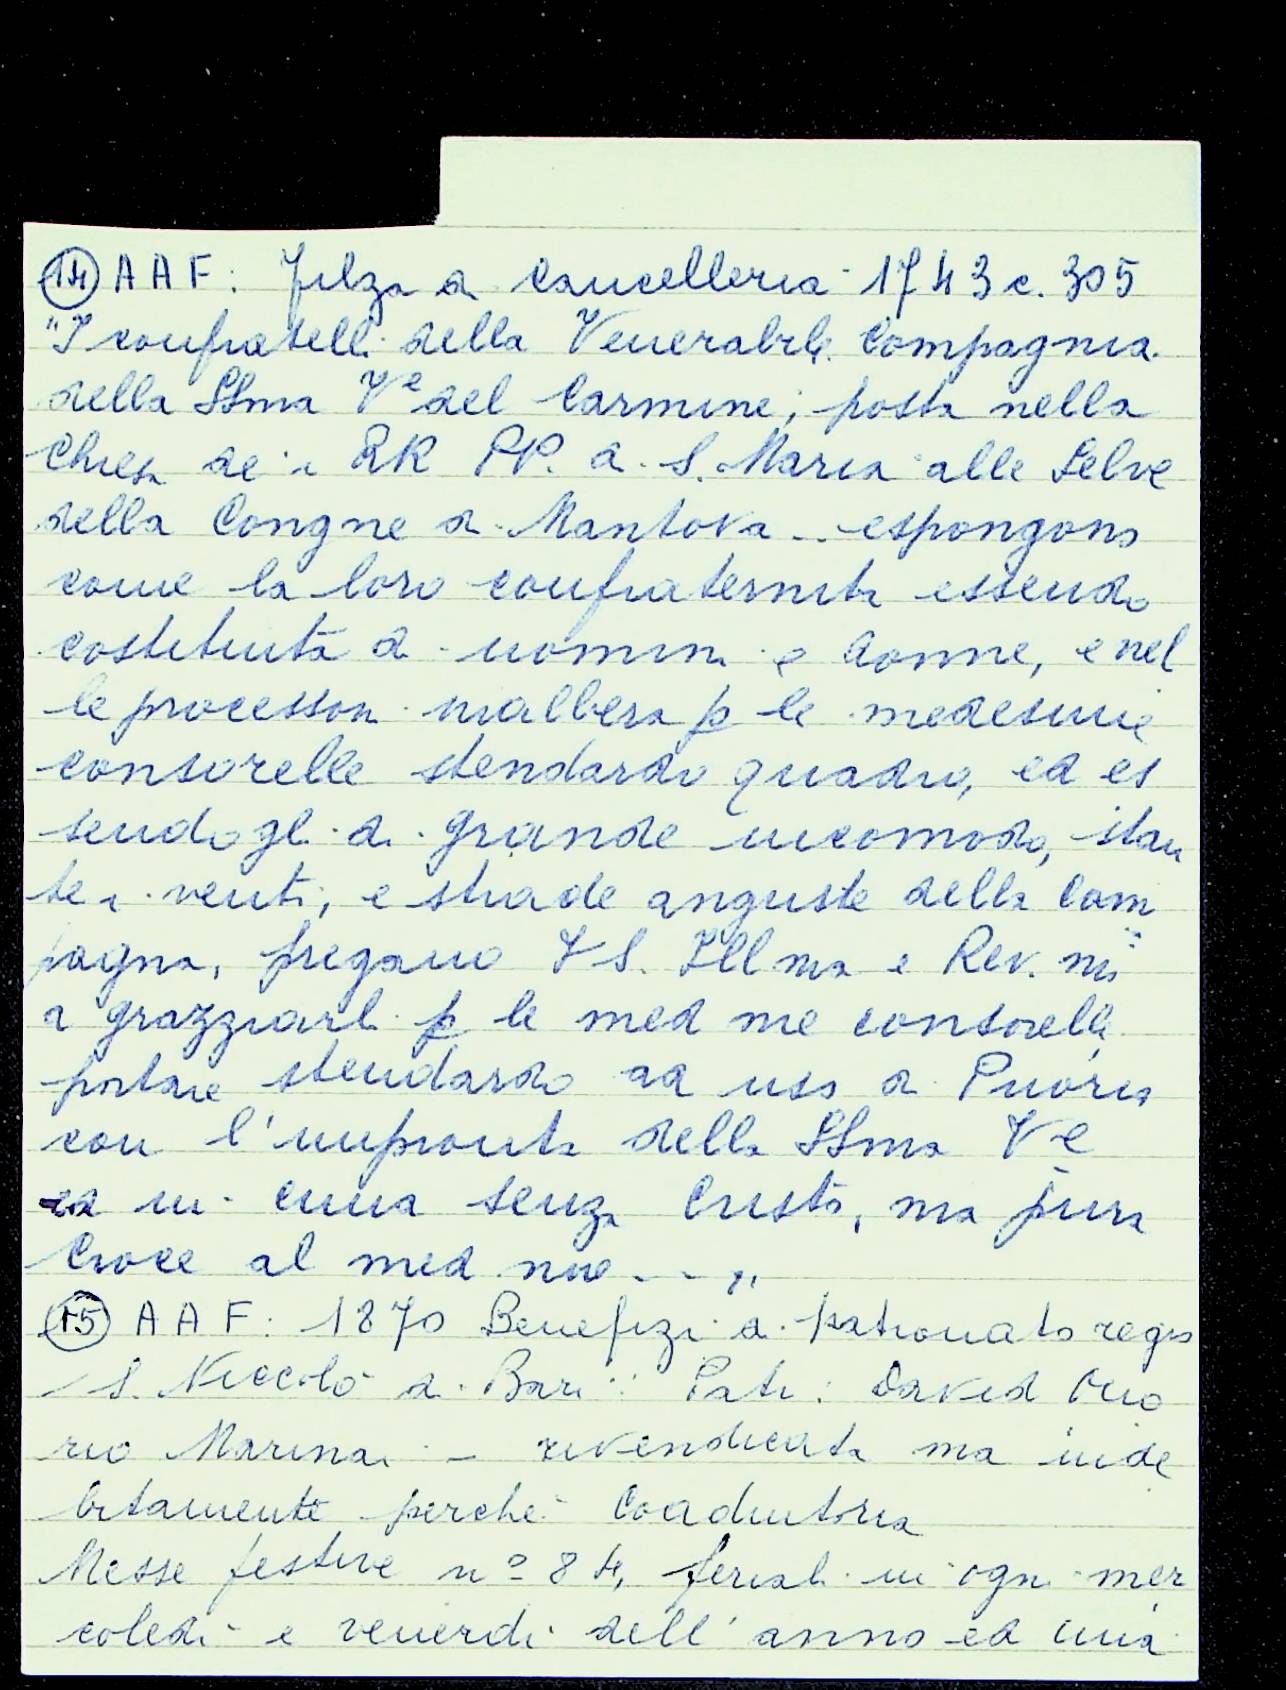 (14) AAF: Filza di Cancelleria 1743 c. 305
"I confratelli della Venerabile Compagnia
della SSma Ve del Carmine, posta nella
Chiesa de i RR PP. di S. Maria alle Selve
della Congne di Mantova .. espongono
come la loro confraternita essendo
costituita di uomini e donne, e nel
le processioni inalbera p le medesime
consorelle stendardo quadro, ed es
sendogli di grande incomodo, stan
te i venti, e strade anguste della Cam
pagna, pregano VS. Illma e Rev. ma
a grazziarli p le med me consorelle
portare stendardo ad uso di
con l'impronta della SSma Ve
ed in cima senza Cristo, ma pura
Croce al med. mo - - "
(15) AAF: 1870 Benefizi di patronato regio
- S. Niccolò di Bari: Patr: David Ono
rio Marinai - rivendicata ma inde
bitamente perchè Coadiutoria
Messe festive n° 84, feriali in ogni mer
coledì e venerdì dell'anno ed una